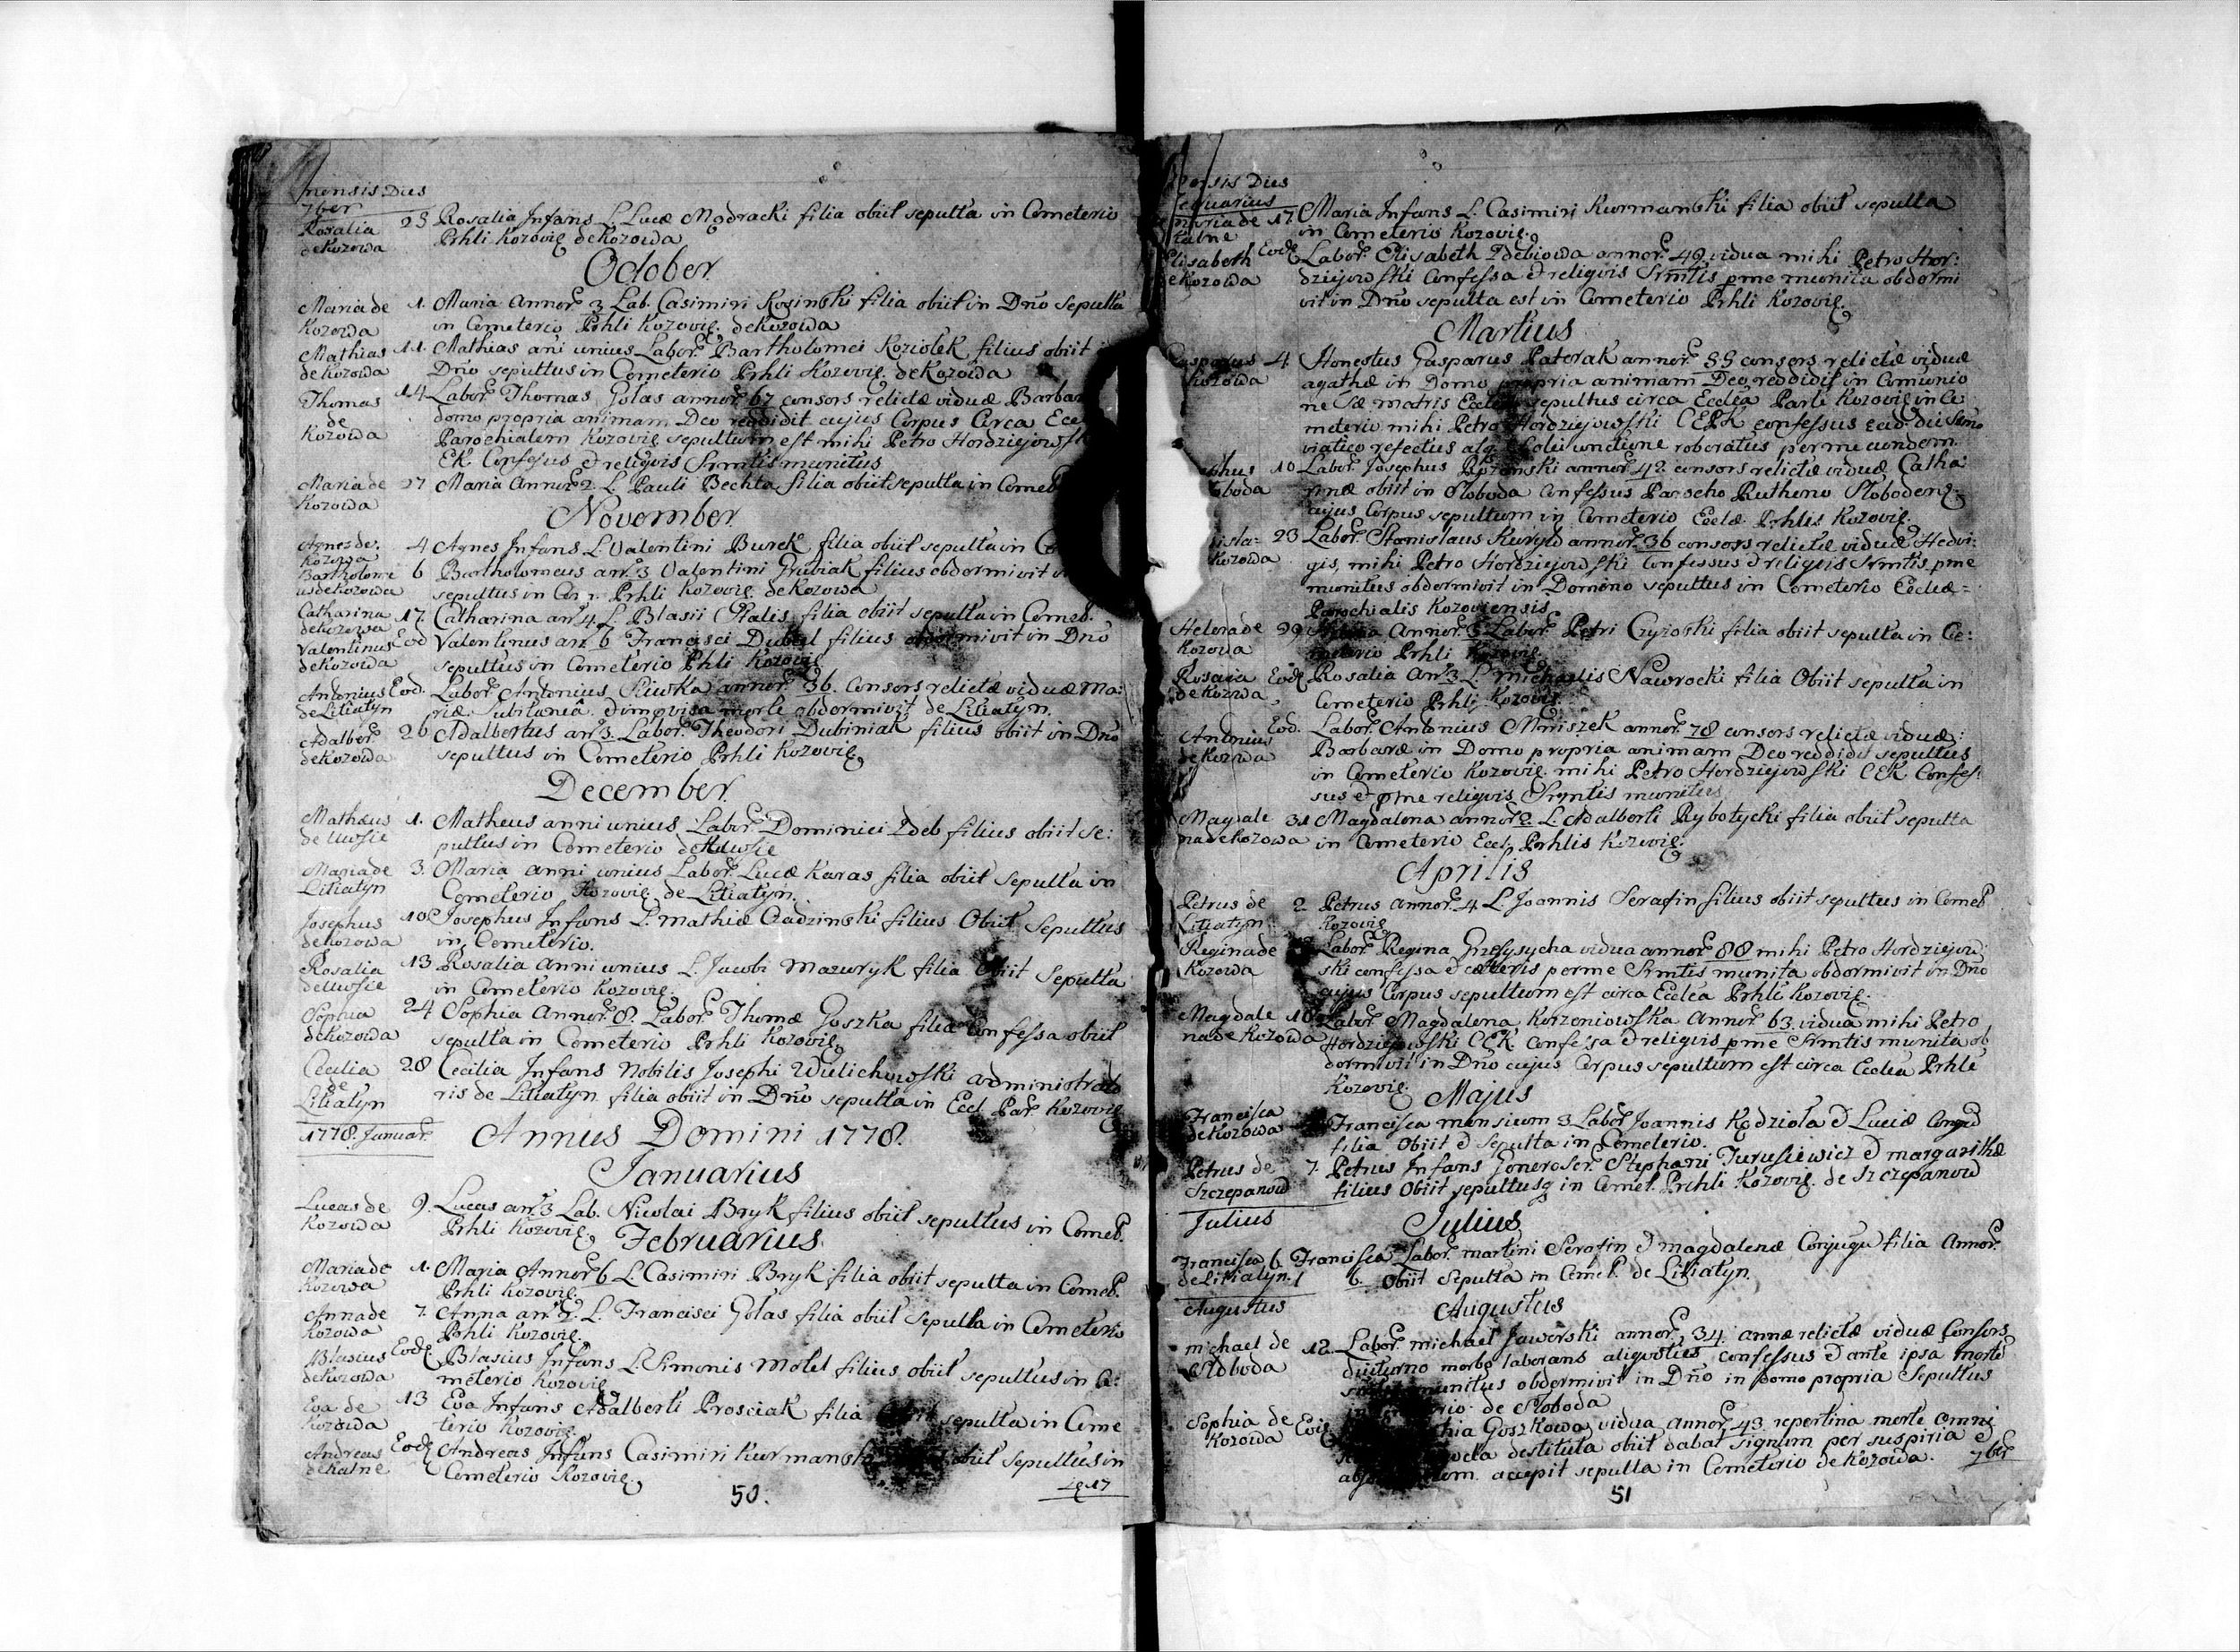 mensis Dies
7ber
Rosalia de Kozowa 23 Rosalia Infans L. Lucæ Mądracki filia obiit sepulta in Cemeterio
Prhli Kozovię de Kozowa
October
Maria de Kozowa 1. Maria Annor. 3 Lab. Casimiri Kosinski filia obiit in Dno sepulta
in Cemeterio Prhli Kozovię. de Kozowa
Mathias de Kozowa 11. Mathias ani unius Labor. Bartholomei Koziolek filius obiit
Dno sepultus in Cemeterio Prhli Kozovię. de Kozowa
Thomas de Kozowa 14 Labor. Thomas Golas annor. 67 consors relictæ viduæ Barbar
domo propria animam Deo reddidit cujus Corpus Circa Ecc
Parochialem Kozovię sepultum est mihi Petro Hordziejowsk
EK. Confessus & reliquis Srmtis munitus
Maria de Kozowa 27 Maria Annor. 2. L. Pauli Bechta filia obiit sepulta in Comet
November
Agnes de Kozowa 4 Agnes Infans L. Valentini Burek filia obiit sepulta in
Bartholome us de Kozowa 6 Bartholomeus an. 3 Valentini Grubiak filius obdormivit
sepultus in Prhli Kozovię. de Kozowa
Catharina de Kozowa 17. Catharina an. 4 L. Blasii filia obiit sepulta in Comet.
Valentinus de Kozowa Eod Valentinus an. 6 Francisci filius obdormivit in Dno
sepultus in Cometerio Prhli Kozovię
Antonius de Litiatyn Eod. Labor. Antonius Sliwka annor. 36. consors relictæ viduæ Ma:
riæ. Subitanea & improvisa morte obdormivit de Litiatyn.
Adalber. de Kozowa 26 Adalbertus an. 3. Labor. Theodori Dubiniak filius obiit in Dno
sepultus in Cometerio Prhli Kozovię
December
Mathæus de Uwsie 1. Matheus anni unius Labor. Dominici Zdeb filius obiit se:
pultus in Cometerio de Uwsie
Maria de Litiatyn 3. Maria anni unius Labor. Lucæ Karas filia obiit sepulta in
Cometerio Kozovię de Litiatyn.
Josephus de Kozowa 10 Josephus Infans L. Mathiæ Czadzinski filius Obiit Sepultus
in Cometerio.
Rosalia de Uwsie 13 Rosalia Anni unius L. Jacobi Mazuryk filia Obiit Sepulta
in Cometerio Kozovię.
Sophia de Kozowa 24 Sophia Annor. 8. Labor. Thomæ Goszka filia Confessa obiit
sepulta in Cometerio Prhli Kozovię
Cecilia de Litiatyn 28 Cecilia Infans Nobilis Josephi Wielichowski administrato
ris de Litiatyn filia obiit in Dno sepulta in Eccl. Par. Kozovię
1778. Januar. Annus Domini 1778.
Januarius
Lucas de Kozowa 9. Lucas an. 3 Lab. Nicolai Bryk filius obiit sepultus in Comet.
Prhli Kozovię Februarius
Maria de Kozowa 1. Maria Annor. 6 L. Casimiri Bryk filia obiit sepulta in Comet.
Prhli Kozovię.
Anna de Kozowa 7. Anna an. 2. L. Francisci Golas filia obiit Sepulta in Cemeterio
Prhli Kozovię.
Blasius de Kozowa Eod. Blasius Infans L. Simonis Motel filius obiit sepultus in Ce:
meterio Kozovię
Eva de Kozowa 13 Eva Infans Adalberti Prosciak filia sepulta in Ceme
terio Kozovię.
Andreas de Kalne Eod. Andreas Infans Casimiri Kurmanski obiit sepultus in
Cemeterio Kozovię
50.
17
Mensis Dies
Februarius
Maria de Kalne 17. Maria Infans L. Casimiri Kurmanski filia obiit sepulta
in Cemeterio Kozovię.
Elisabeth de Kozowa Eod. Labor. Elisabeth Zdebiowa annor. 49 vidua mihi Petro Hor:
dziejowski Confessa & reliquis Srmtis pme munita obdormi
vit in Dno sepulta est in Cometerio Prhli Kozovię
Martius
Gasparus Kozowa 4. Honestus Gasparus Paterak annor. 55 consors relictæ viduæ
agathæ in Domo propria animam Deo reddidit in Comunio
ne Sæ matris Ecclæ sepultus circa Eccléa Parli Kozovię in Ce
meterio mihi Petro Hordziejowski CEPK confessus
viatico refectus unctione roboratus per me eundem
ephus oboda 10 Labor. Josephus annor. 42 consors relictæ viduæ Catha
rinæ obiit in Sloboda Confessus Parocho Rutheno Slobodens
cujus Corpus sepultum in Cometerio Ecclæ Prhlis Kozovię
isla= Kozowa 23 Labor. Stanislaus Kuryło annor. 36 consors relictæ viduæ Hedvi:
gis, mihi Petro Hordziejowski Confessus & reliquis Srmtis pme
munitus obdormivit in Domino sepultus in Cometerio Eccleæ=
Parochialis Kozoviensis
Helena de Kozowa 29 Annor. Labor. Petri Czyżoski filia obiit sepulta in Ce:
meterio Prhli Kozovię.
Rosaria de Kozowa Eod. Rosalia An. 3 L. Michaelis Nawrocki filia Obiit sepulta in
Cemeterio Prhli Kozovię.
Antonius de Kozowa Eod. Labor. Antonius Mniszek annor. 78 consors relictæ viduæ:
Barbaræ in Domo propria animam Deo reddidit sepultus
in Cemeterio Kozovię. mihi Petro Hordziejowski CEK Confes:
sus & pme reliquis Srmtis munitus
Magdale na de Kozowa 31 Magdalena annor. 2. L. Adalberti Rybotycki filia obiit sepulta
in Cometerio Eccl. Prhlis Kozovię.
Aprilis
Petrus de Litiatyn 2. Petrus annor. 4 L. Joannis Serafin filius obiit sepultus in Comet
Kozovię
Regina de Kozowa Labor. Regina vidua annor. 88 mihi Petro Hordziejow
ski confessa & cæteris per me Srmtis munita obdormivit in Dno
cujus Corpus sepultum est circa Ecclea Prhli Kozovię.
Magdale na de Kozowa Labor. Magdalena Korzeniowska Annor. 63 vidua mihi Petro
Hordziejowski CEK. Confessa & reliquis pme Srmtis munita ob
dormivit in Dno cujus Corpus sepultum est circa Ecclea Prhle
Kozovię. Majus
Francisca de Kozowa Francisca mensium 3 Labor. Joannis Kędziola & Luciæ Conjud
filia Obiit & sepulta in Cemeterio.
Petrus de Szczepanow 7. Petrus Infans Generoser. Stephani Jurusiewicz & margarithæ
filius Obiit sepultusq in Comet. Prchli Kozovię. de Szczepanow
Julius Julius
Francisca de Litiatyn. 6 Francisca Labor. martini Serafin & magdalenæ Conjugu filia Annor.
6. Obiit Sepulta in Comet. de Litiatyn.
Augustus Augustus
michael de Sloboda 12. Labor. michael Jaworski annor. 34 annæ relictæ viduæ Consors
diuturno morbo laborans aliquoties confessus & ante ipsa morte
munitus obdormivit in Dno in domo propria Sepultus
rio de Sloboda
Sophia de Kozowa hia Goszkowa vidua annor. 43 repertina morte omni
destituta obiit dabat signum per suspiria &
accepit sepulta in Cemeterio de Kozowa. 7ber
51